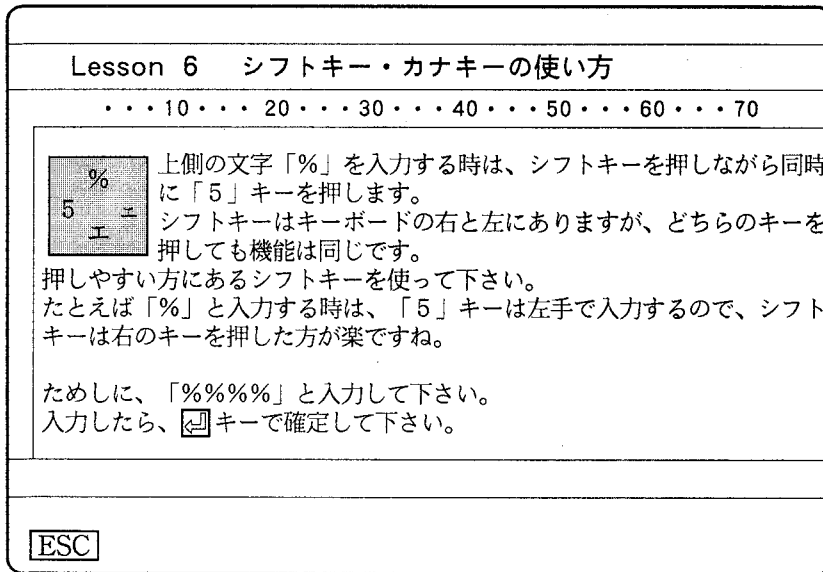 Lesson 6 シフトキー・カナキーの使い方
・・・10・・・20・・・30・・・40・・・50・・・60・・・70
%
5 ェ
エ
上側の文字「%」を入力する時は、シフトキーを押しながら同時
に「5」キーを押します。
シフトキーはキーボードの右と左にありますが、どちらのキーを
押しても機能は同じです。
押しやすい方にあるシフトキーを使って下さい。
たとえば「%」と入力する時は、「5」キーは左手で入力するので、シフト
キーは右のキーを押した方が楽ですね。
ためしに、「%%%%」と入力して下さい。
入力したら、キーで確定して下さい。
ESC